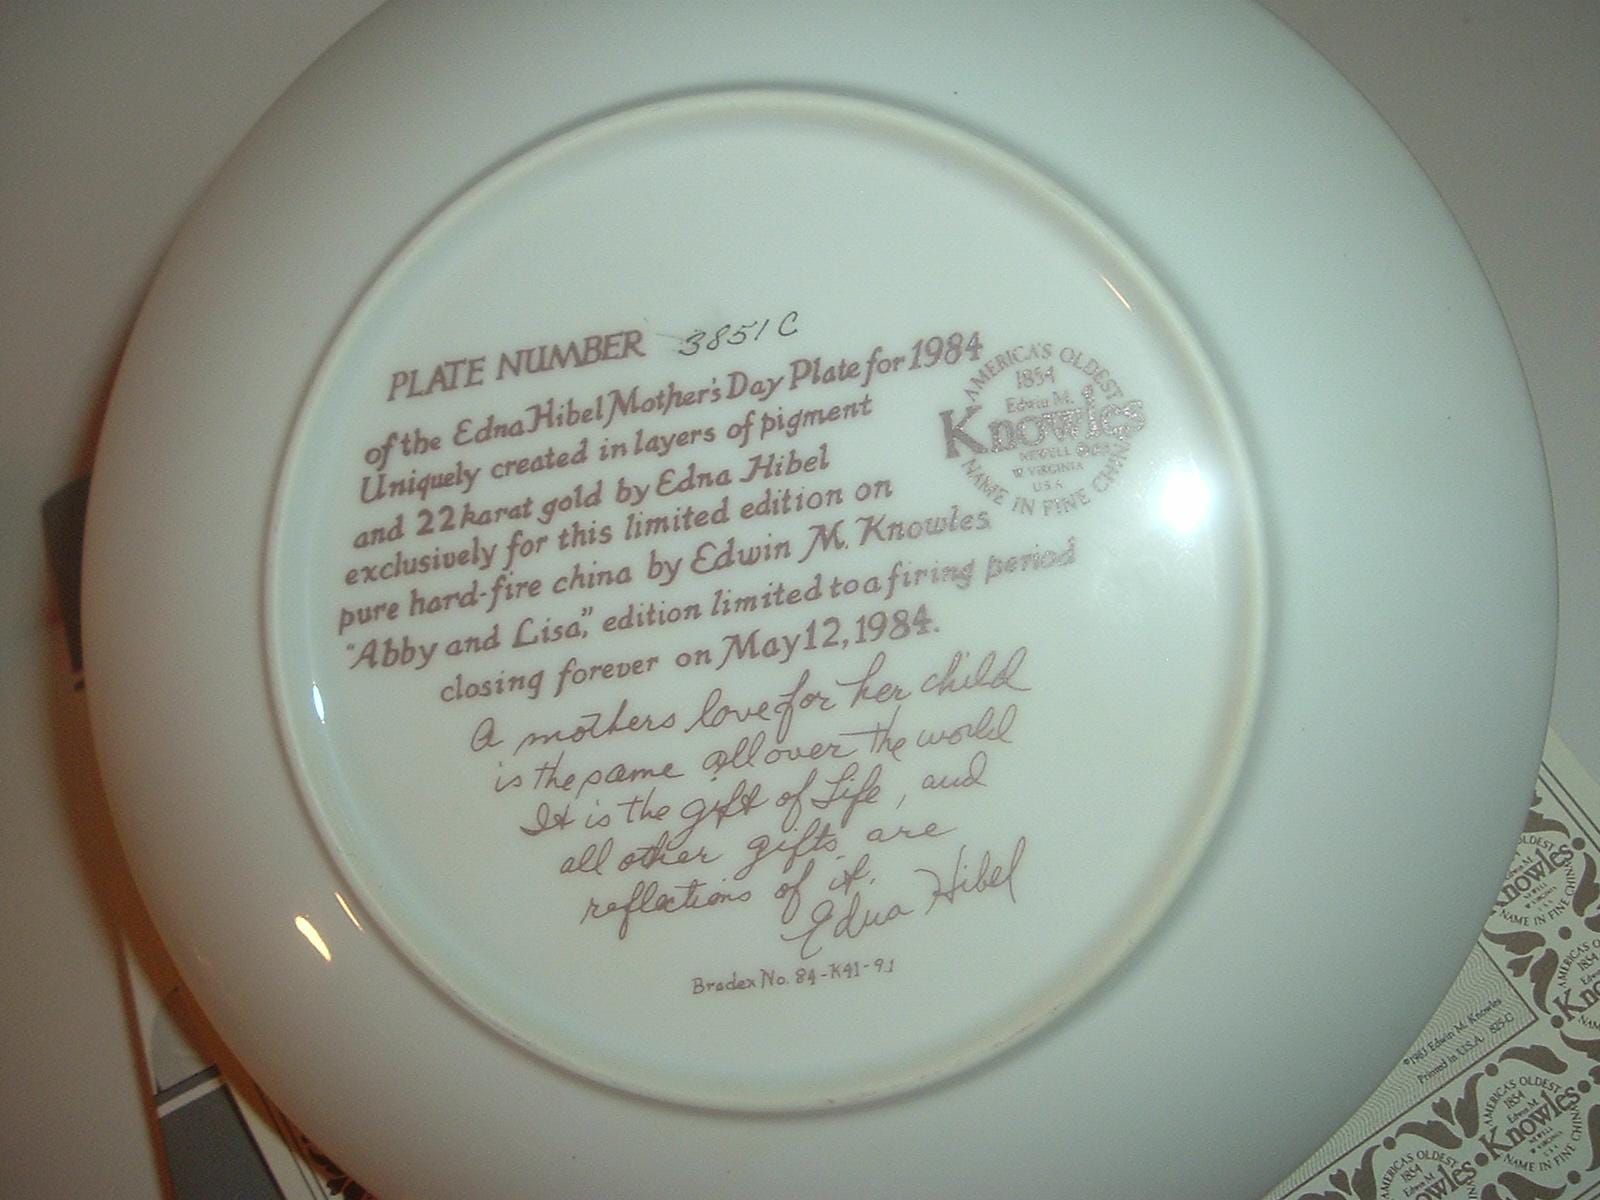 PLATE NUMBER 3851 C
of the Edna Hibel Mother's Day Plate for 1984
Uniquely created in layers of pigment
and 22 karat gold by Edna Hibel
exclusively for this limited edition on
pure hard-fire china by Edwin M. Knowles
"Abby and Lisa," edition limited to a firing period
closing forever on May 12, 1984.
A mothers love for her child
is the same all over the world
It is the gift of Life, and
all other gifts are
reflections of it.
Edna Hibel
Bradex No. 84-K41-9.1
AMERICA'S OLDEST
1854
Edwin M.
Knowles
NEWELL
W VIRGINIA
U.S.A.
NAME IN FINE CHINA
OLDEST
Knowles
NAME IN FINE
©1983 Edwin M. Knowles
Printed in U.S.A. 825-C
AMERICA'S OLDEST
1854
Edwin M.
Knowles
NEWELL
W VIRGINIA
U.S.A.
NAME IN FINE CHINA
AMERICA'S OLDEST
1854